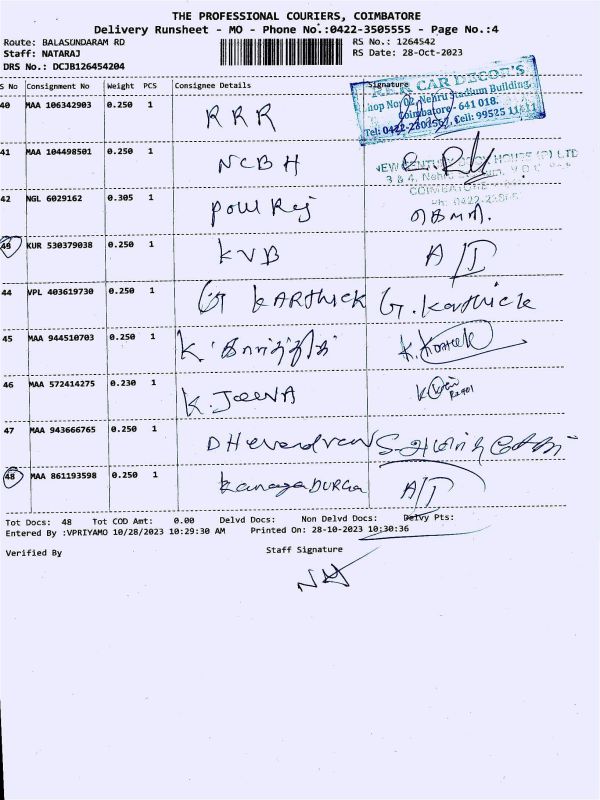 THE PROFESSIONAL COURIERS, COIMBATORE
Delivery Runsheet - MO - Phone No.:0422-3505555 - Page No.:4
Route: BALASUNDARAM RD RS No.: 1264542
Staff: NATARAJ RS Date: 28-Oct-2023
DRS No.: DCJB126454204
S No Consignment No Weight PCS Consignee Details Signature
RRR CAR DECOR'S
hop No: 02, Nehru Stadium Building,
Coimbatore - 641 018.
Cell: 99525 11 11
40 MAA 106342903 0.250 1 RRR
41 MAA 104498501 0.250 1 NCBH
NEW CENTURY BOOK HOUSE (P) LTD
3 & 4, Nehru
42 NGL 6029162 0.305 1 Poul Raj
43 KUR 530379038 0.250 1 KVB A/T
44 VPL 403619730 0.250 1 G KARthick G. Karthick
45 MAA 944510703 0.250 1 K. கார்த்திக் K. Karthick
46 MAA 572414275 0.230 1 K. JEENA
47 MAA 943666765 0.250 1
48 MAA 861193598 0.250 1 Kanaga DURGA A/T
Tot Docs: 48 Tot COD Amt: 0.00 Delvd Docs: Non Delvd Docs: Delvy Pts:
Entered By :VPRIYAMO 10/28/2023 10:29:30 AM Printed On: 28-10-2023 10:30:36
Verified By Staff Signature